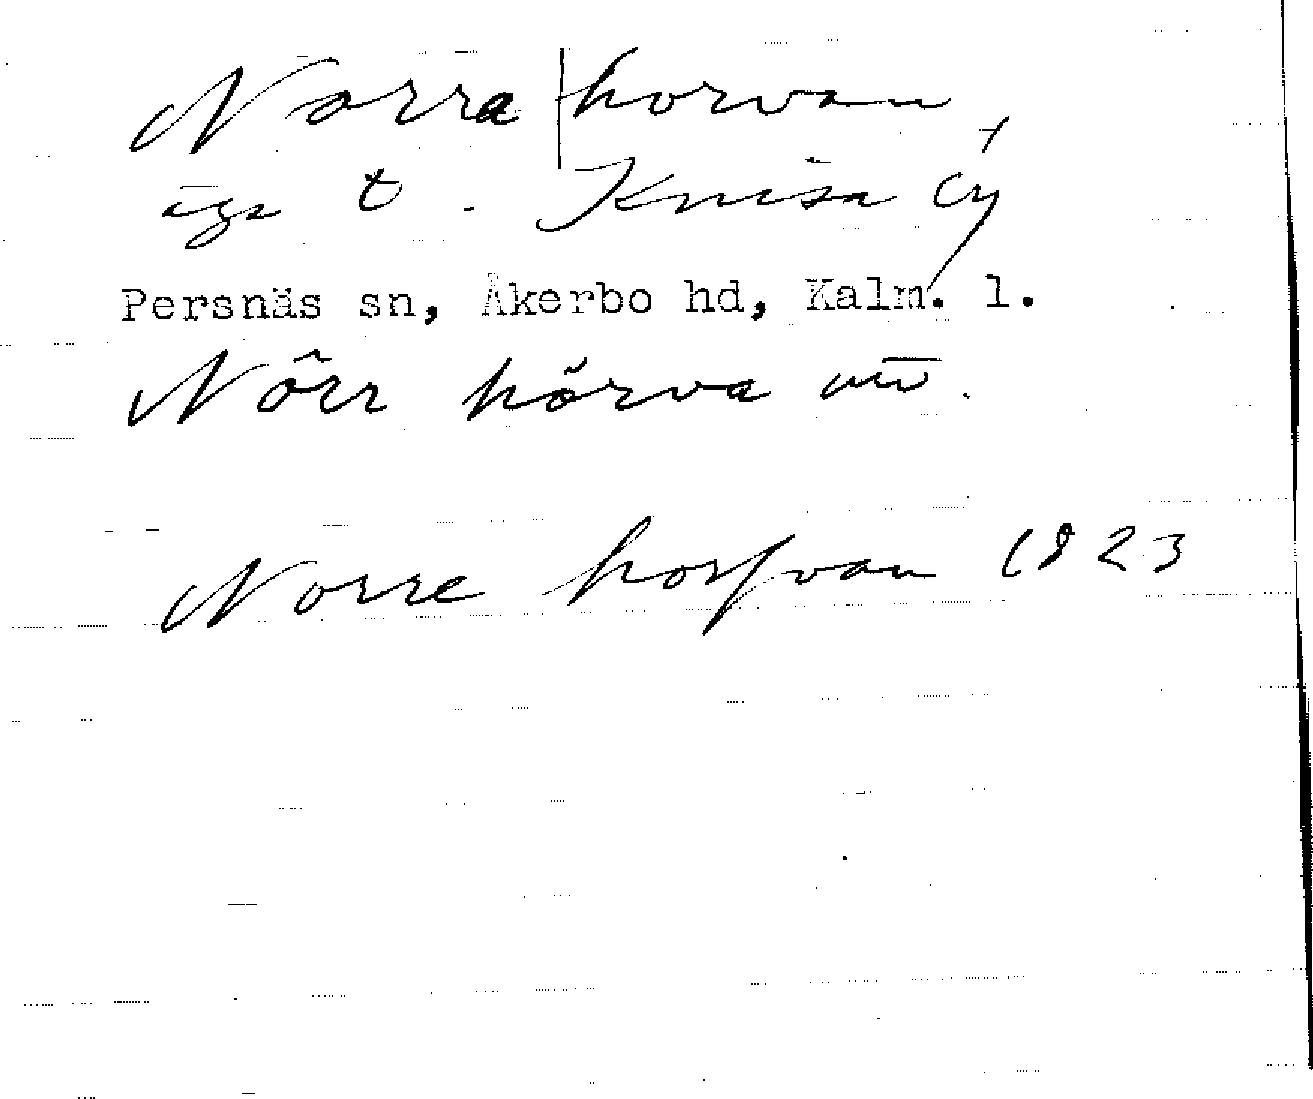 Norra | horvan,
äga t. Knisa by
Persnäs sn, Åkerbo hd, Kalm. l.
Nôrr hörva
Norre horfvan 1823